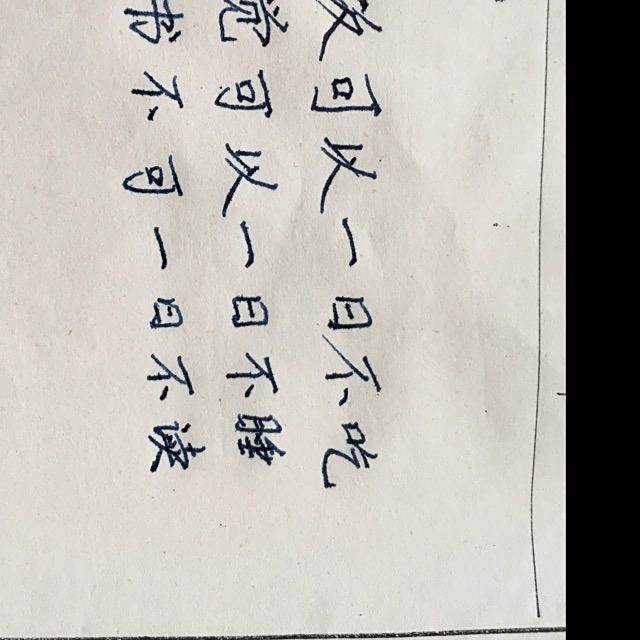 可以一日不吃
觉可以一日不睡
书不可一日不读